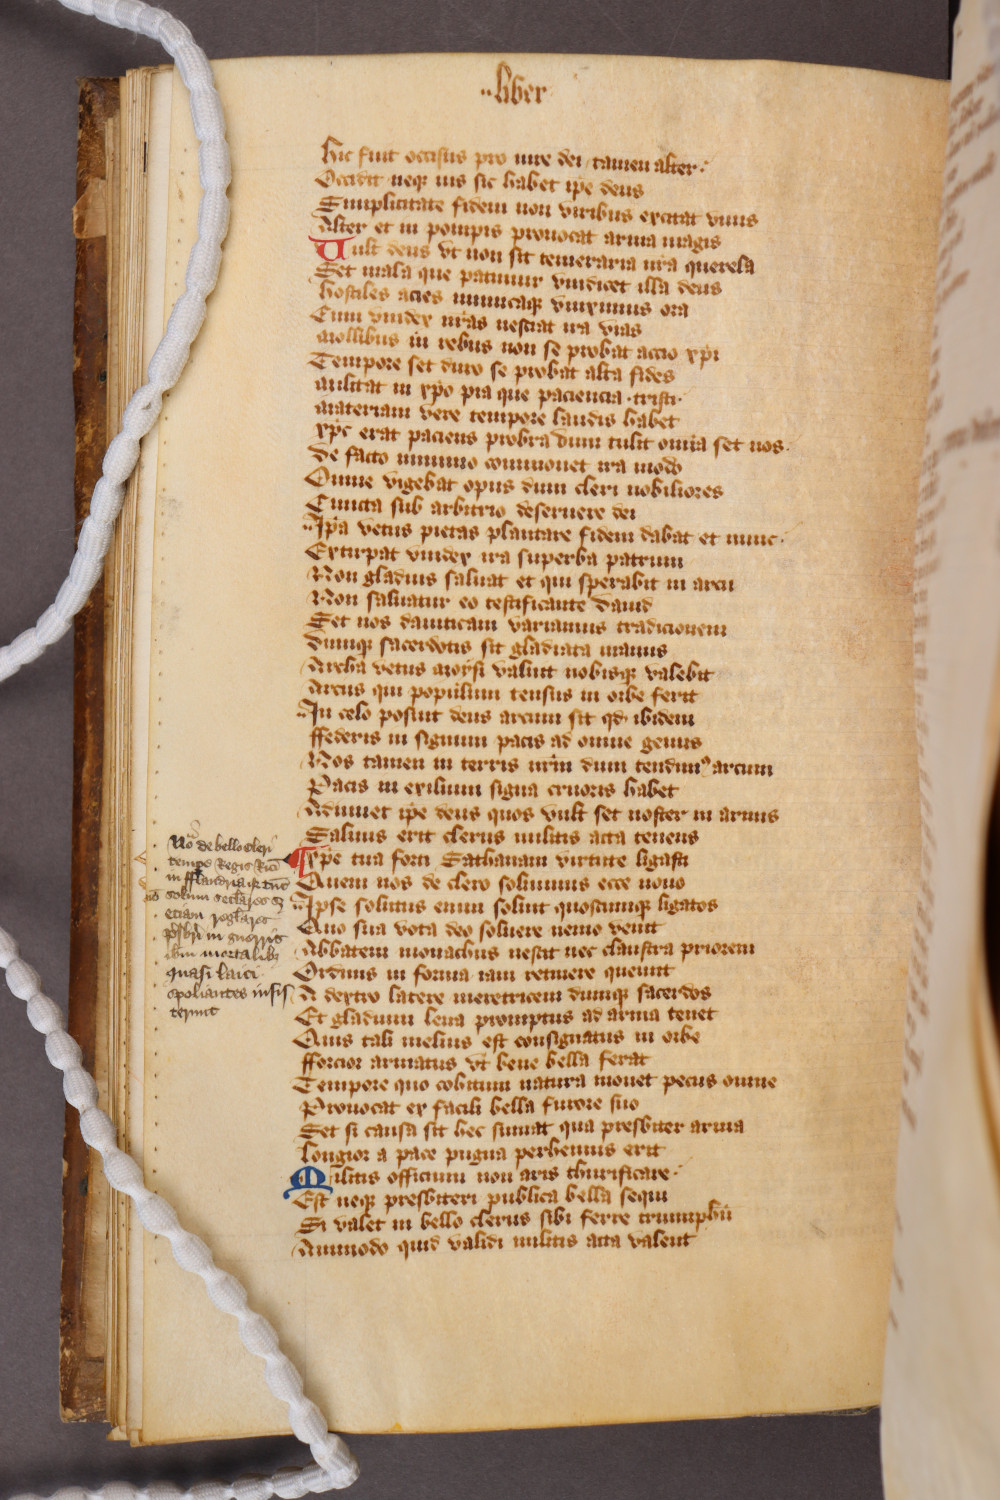 liber
hic fuit occisus pro iure dei tamen alter
Occidit neqꝫ ius sic habet ip̄e deus
Simplicitate fidem non viribus excitat vnus
Alter et in pompis prouocat arma magis
Vult deus vt non sit temeraria nr̄a querela
Set mala que patimur vindicet illa deus
hostiles acies inimicaqꝫ vinximus ora
Cum vindex nr̄as nesciat ira vias
mollibus in rebus non se probat accio xp̄i
Tempore set duro se probat alta fides
militat in xp̄o pia que paciencia tristi
materiam vere tempore laudis habet
xp̄c erat paciens probra dum tulit om̄ia set nos
de facto minimo commouet ira modo
Omne vigebat opus dum cleri nobiliores
Cuncta sub arbitrio deseruere dei
Ip̄a vetus pietas plantare fidem dabat et nunc
Extirpat vindex ira superba patrum
Non gladius saluat et qui sperabit in arcu
Non saluatur eo testificante dauid
Set nos dauiticam variamus tradicionem
dumqꝫ sacerdotis sit gladiata manus
Archa vetus moysi valuit nobisqꝫ valebit
Arcus qui populum tensus in orbe ferit
In celo posuit deus arcum sit qd̄ ibidem
ffederis in signum pacis ad omne genus
Nos tamen in terris nr̄m dum tendimꝰ arcum
Pacis in exilium signa cruoris habet
Adiuuet ip̄e deus quos vult set noster in armis
Saluus erit clerus militis acta tenens
Xp̄e tua forti Sathanam virtute ligasti
Quem nos de clero soluimus ecce nouo
Ipse solutus enim soluit quoscumqꝫ ligatos
Quo sua vota deo soluere nemo venit
Abbatem monachus nescit nec claustra priorem
Ordinis in forma iam retinere queunt
A dextro latere meretricem dumqꝫ sacerdos
Et gladium leua promptus ad arma tenet
Quis tali melius est consignatus in orbe
fforcior armatus vt bene bella ferat
Tempore quo cobitum natura mouet pecus omne
Prouocat ex facili bella furore suo
Set si causa sit hec sumat qua presbiter arma
longior a pace pugna perhennis erit
Militis officium non aris thurificare
Est neqꝫ presbiteri publica bella sequi
Si valet in bello clerus sibi ferre triumphū
Ammodo quid validi militis acta valent
No de bello cleri
tempe Regis Ric̄
in fflandria tūc
solum seclares
etiam reglares
p̄sbri in guerris
ibm mortalibꝫ
quasi laici
spoliantes insis
terunt